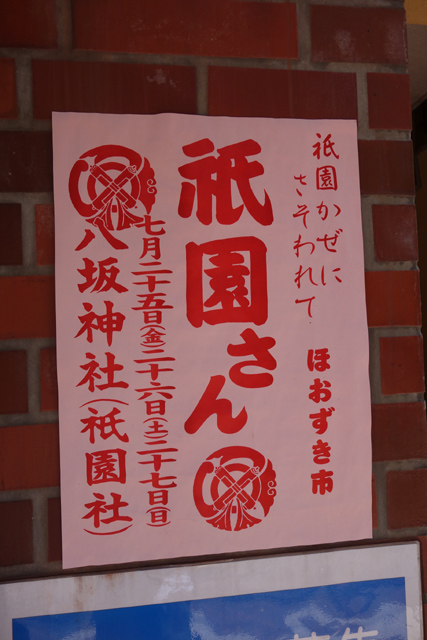 祇園かぜに
さそわれて
ほおずき市
祇園さん
七月二十五日(金)二十六日(土)二十七日(日)
八坂神社(祇園社)